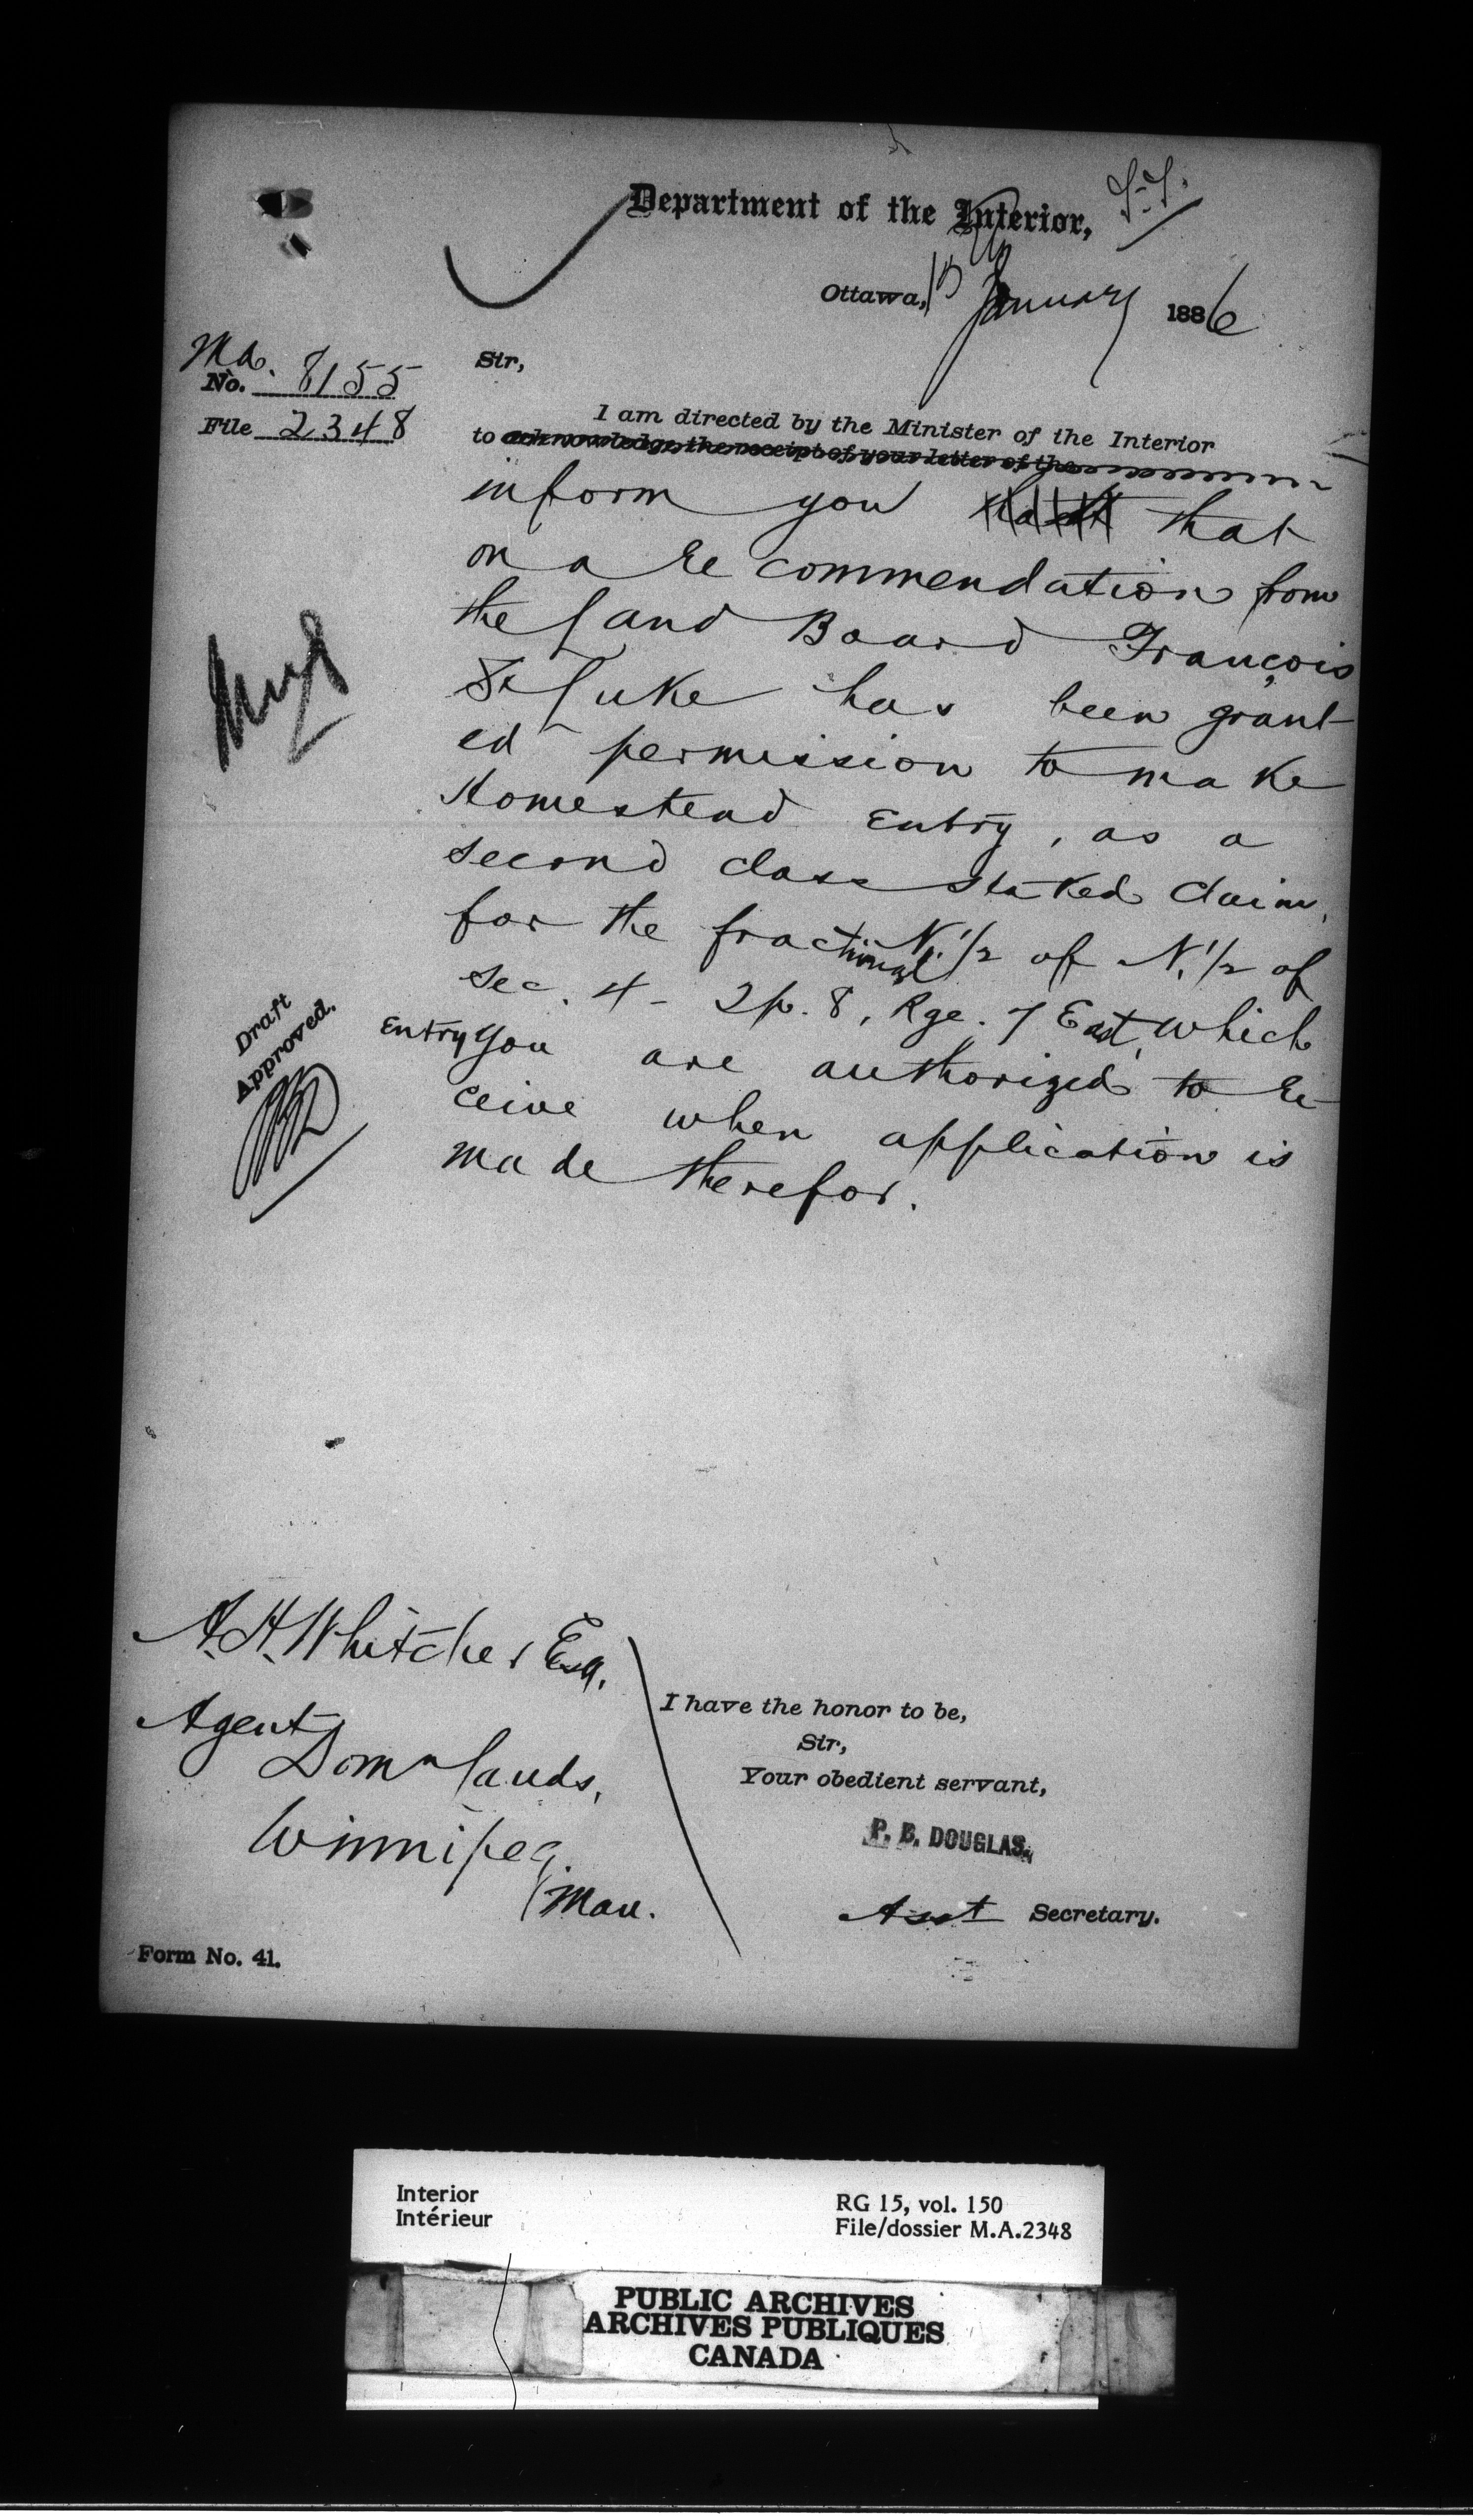 Department of the Interior,
Ottawa, 15 January 1886
M.A.
No. 8155
File 2348
Sir,
I am directed by the Minister of the Interior
to acknowledge the receipt of your letter of the
inform you that
on a recommendation from
the Land Board François
St Luke has been grant-
ed permission to make
Homestead Entry, as a
second class staked claim,
for the fractional N. 1/2 of N. 1/2 of
Sec. 4 - Tp. 8, Rge. 7 East, which
entry you are authorized to re-
ceive when application is
made therefor.
Draft
Approved.
A. H. Whitcher Esq.
Agent
Domn Lands,
Winnipeg
Man.
I have the honor to be,
Sir,
Your obedient servant,
P. B. DOUGLAS.
Asst Secretary.
Form No. 41.
Interior
Intérieur
RG 15, vol. 150
File/dossier M.A.2348
PUBLIC ARCHIVES
ARCHIVES PUBLIQUES
CANADA